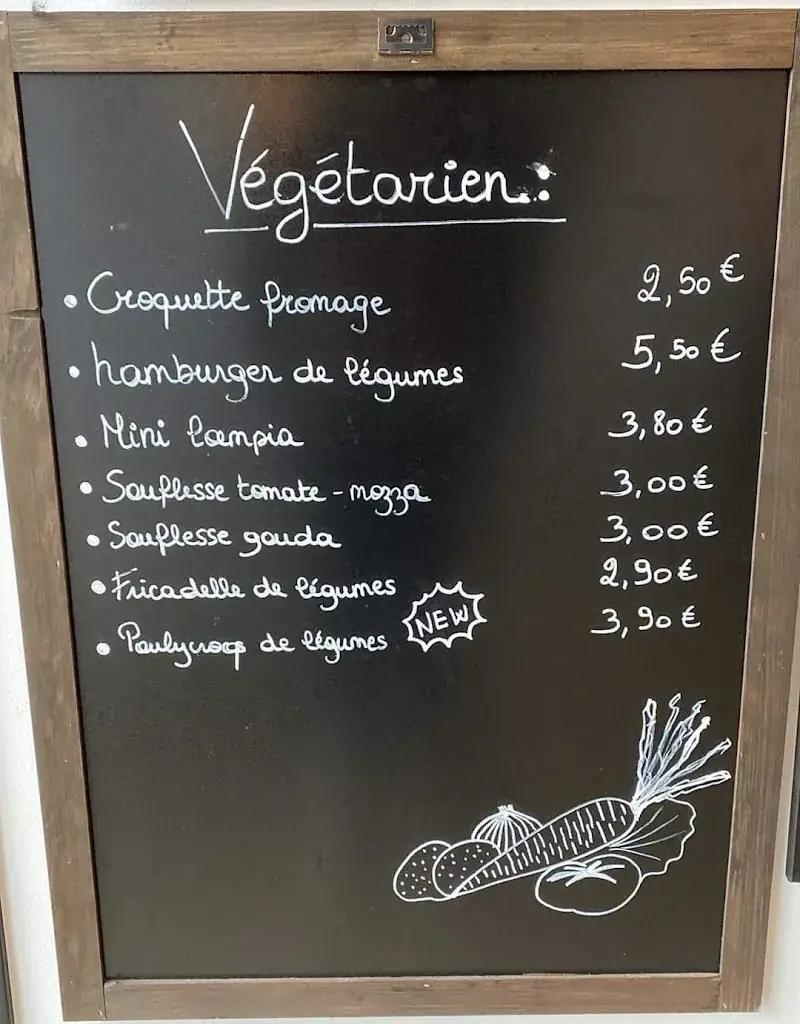 Végétarien :
• Croquette fromage 2,50 €
• hamburger de légumes 5,50 €
• Mini loempia 3,80 €
• Souflesse tomate - mozza 3,00 €
• Souflesse gouda 3,00 €
• Fricadelle de légumes 2,90 €
• Poulycroc de légumes NEW 3,90 €